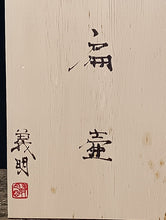 扁壷
義明